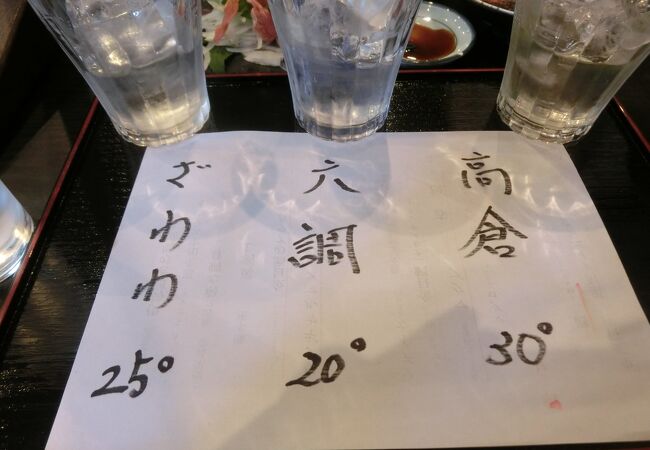 ざわわ
25°
六調
20°
高倉
30°